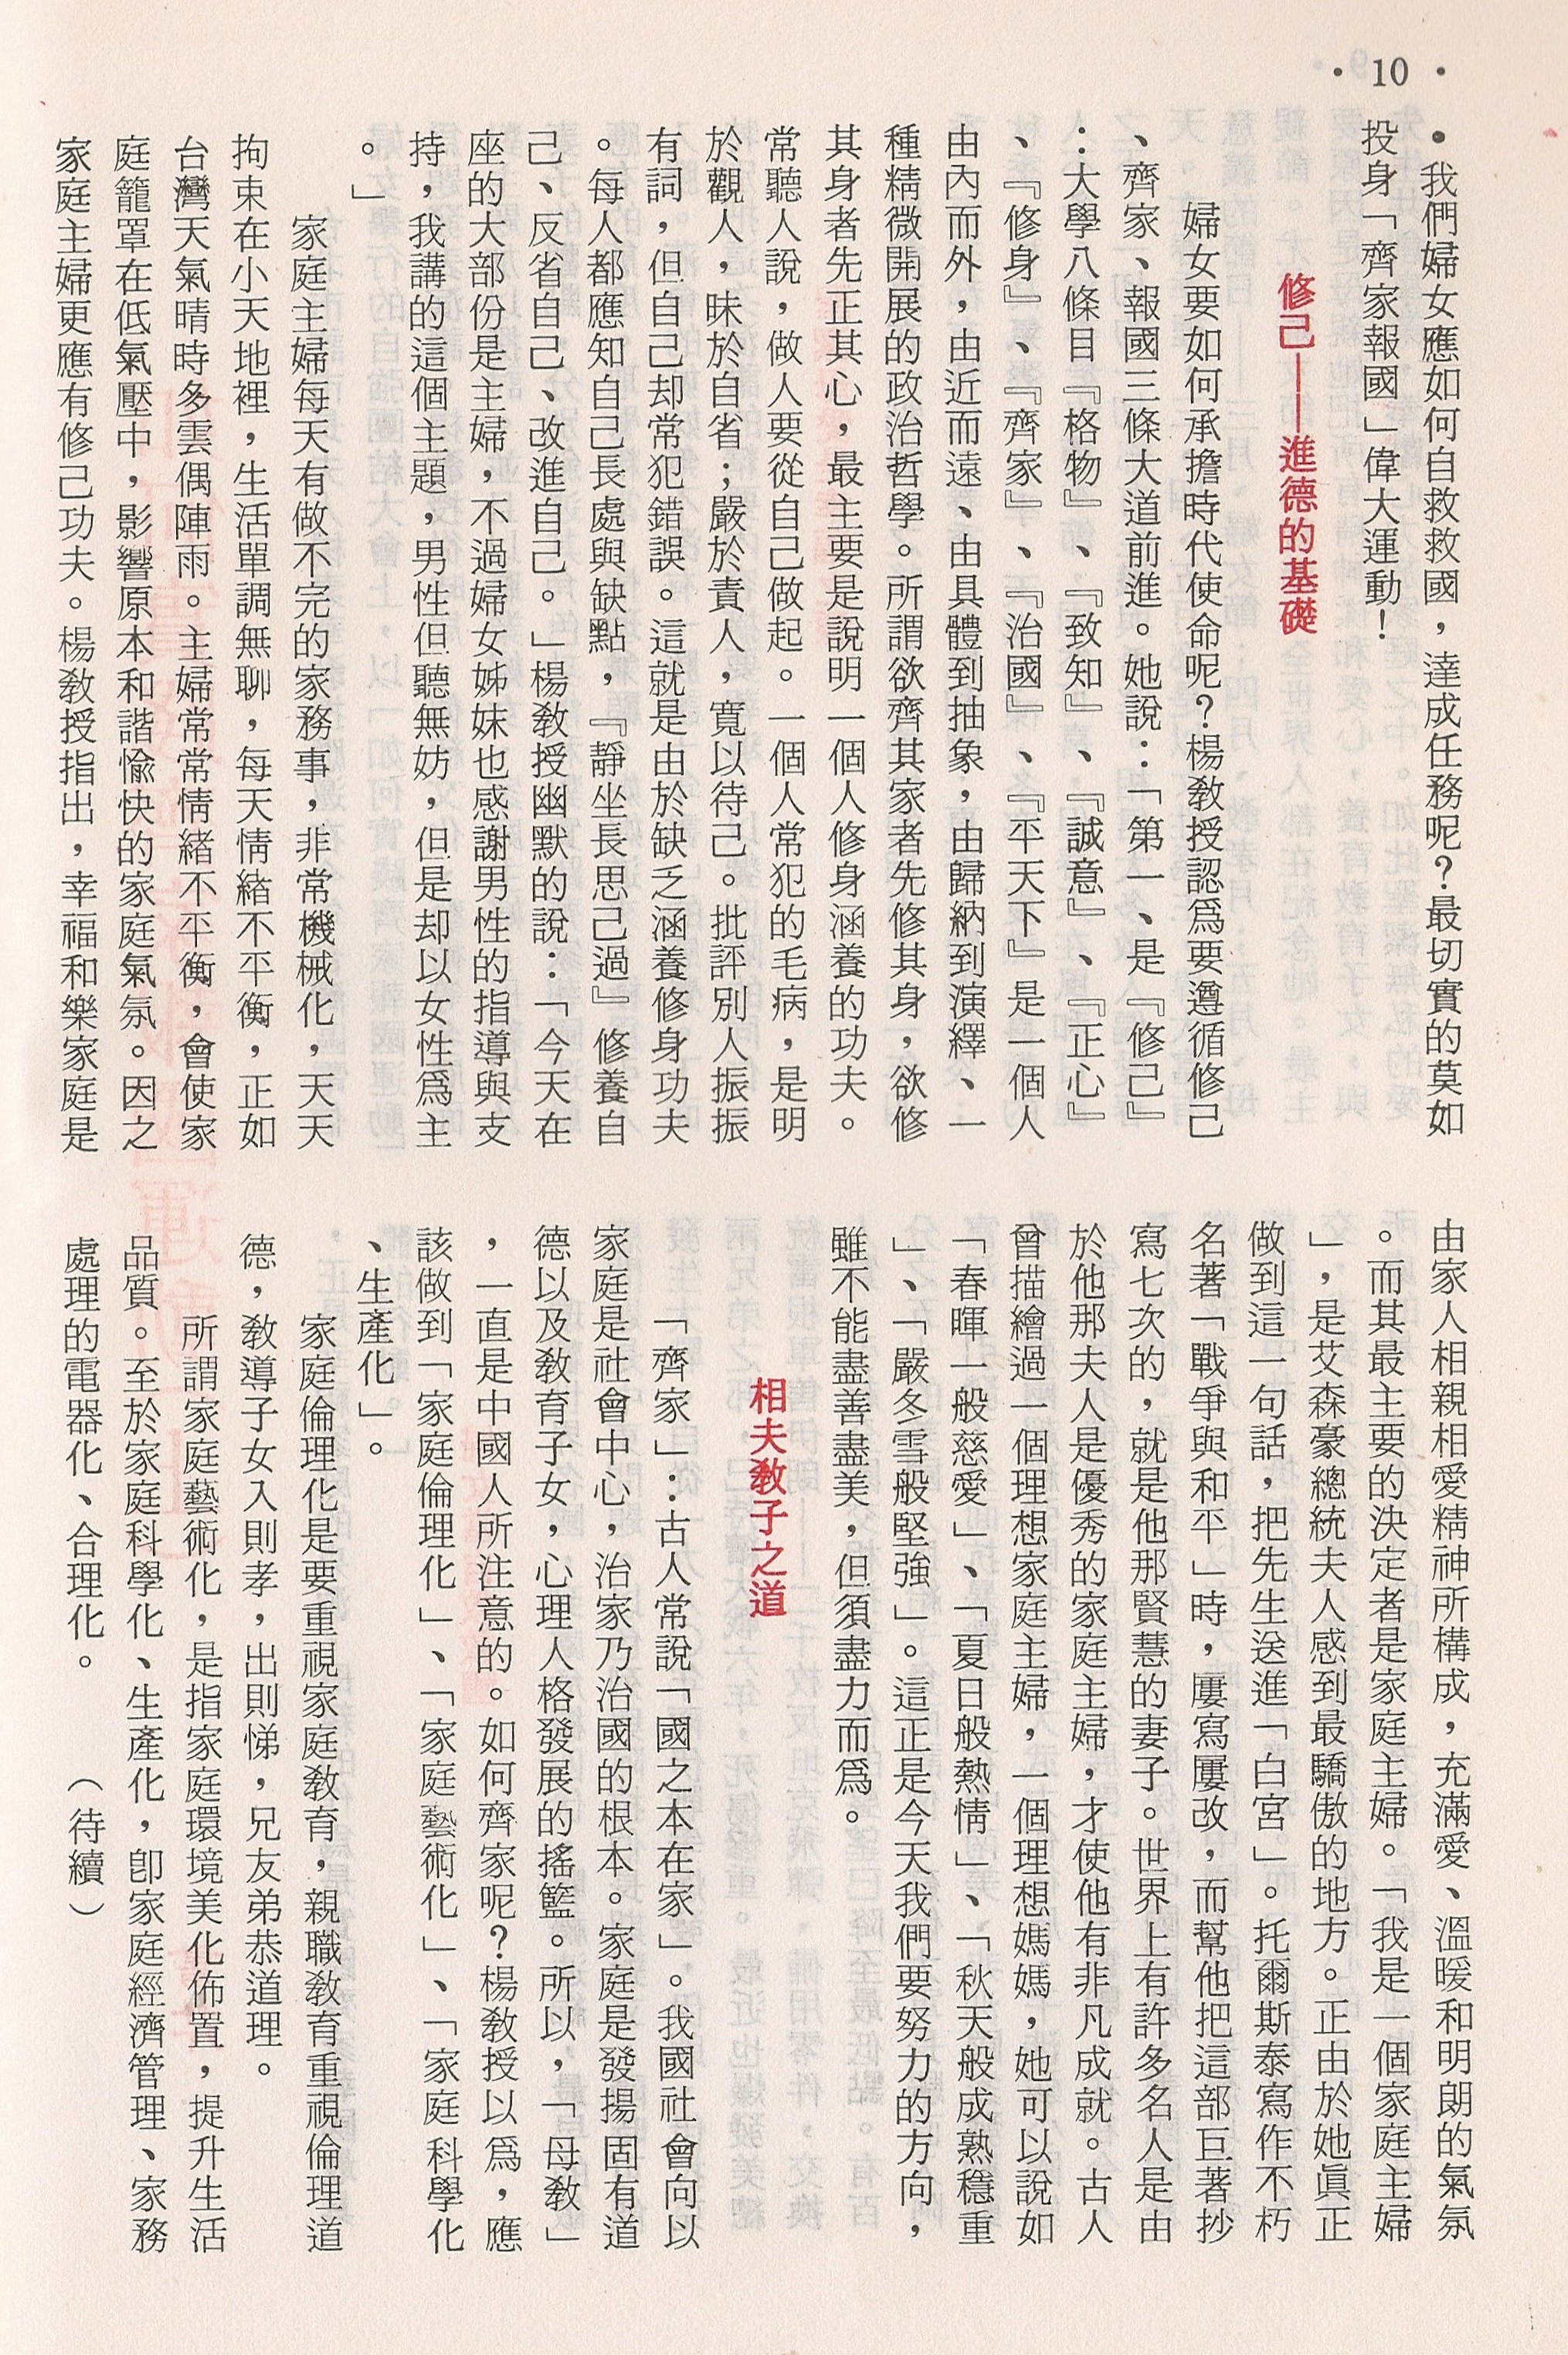 ・10・
•我們婦女應如何自救救國，達成任務呢？最切實的莫如
投身「齊家報國」偉大運動！
修己——進德的基礎
婦女要如何承擔時代使命呢？楊教授認爲要遵循修己
、齊家、報國三條大道前進。她說：「第一、是『修己』
：大學八條目『格物』、『致知』、『誠意』、『正心』
、『修身』、『齊家』、『治國』、『平天下』是一個人
由內而外，由近而遠、由具體到抽象，由歸納到演繹、一
種精微開展的政治哲學。所謂欲齊其家者先修其身，欲修
其身者先正其心，最主要是說明一個人修身涵養的功夫。
常聽人說，做人要從自己做起。一個人常犯的毛病，是明
於觀人，昧於自省；嚴於責人，寬以待己。批評別人振振
有詞，但自己却常犯錯誤。這就是由於缺乏涵養修身功夫
。每人都應知自己長處與缺點，『靜坐長思己過』修養自
己、反省自己、改進自己。」楊教授幽默的說：「今天在
座的大部份是主婦，不過婦女姊妹也感謝男性的指導與支
持，我講的這個主題，男性但聽無妨，但是却以女性爲主
。」
家庭主婦每天有做不完的家務事，非常機械化，天天
拘束在小天地裡，生活單調無聊，每天情緒不平衡，正如
台灣天氣晴時多雲偶陣雨。主婦常常情緒不平衡，會使家
庭籠罩在低氣壓中，影響原本和諧愉快的家庭氣氛。因之
家庭主婦更應有修己功夫。楊教授指出，幸福和樂家庭是
由家人相親相愛精神所構成，充滿愛、溫暖和明朗的氣氛
。而其最主要的決定者是家庭主婦。「我是一個家庭主婦
」，是艾森豪總統夫人感到最驕傲的地方。正由於她眞正
做到這一句話，把先生送進「白宮」。托爾斯泰寫作不朽
名著「戰爭與和平」時，屢寫屢改，而幫他把這部巨著抄
寫七次的，就是他那賢慧的妻子。世界上有許多名人是由
於他那夫人是優秀的家庭主婦，才使他有非凡成就。古人
曾描繪過一個理想家庭主婦，一個理想媽媽，她可以說如
「春暉一般慈愛」、「夏日般熱情」、「秋天般成熟穩重
」、「嚴冬雪般堅強」。這正是今天我們要努力的方向，
雖不能盡善盡美，但須盡力而爲。
相夫教子之道
「齊家」：古人常說「國之本在家」。我國社會向以
家庭是社會中心，治家乃治國的根本。家庭是發揚固有道
德以及教育子女，心理人格發展的搖籃。所以，「母教」
，一直是中國人所注意的。如何齊家呢？楊教授以爲，應
該做到「家庭倫理化」、「家庭藝術化」、「家庭科學化
、生產化」。
家庭倫理化是要重視家庭教育，親職教育重視倫理道
德，教導子女入則孝，出則悌，兄友弟恭道理。
所謂家庭藝術化，是指家庭環境美化佈置，提升生活
品質。至於家庭科學化、生產化，卽家庭經濟管理、家務
處理的電器化、合理化。　　（待續）